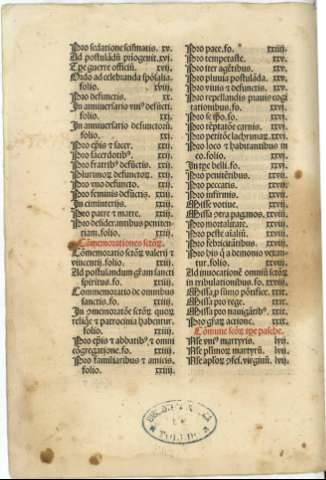 Pro sedatione scismatis. xv.
Ad postulādū priogenit. xvj.
Tpe guerre officiū. xvij.
Ordo ad celebranda spōsalia.
folio. xviij.
Pro defunctis. xx.
In anniuersario vniꝰ defūcti.
folio. xxj.
In anniuersario defunctorū.
folio. xxj.
Pro ep̄is ⁊ sacer. xxij.
Pro sacerdotibꝰ. xxij.
Pro fratribꝰ defūctis. xxij.
Plurimoꝝ defunctoꝝ. xxij.
Pro vno defuncto. xxij.
Pro feminis defūctis. xxij.
In cimiterijs. xxij.
Pro patre ⁊ matre. xxij.
Pro desiderantibus peniten-
tiam. folio. xxiij.
Cōmemorationes sctōꝝ.
Cōmemoratio sctōꝝ valerij ⁊
vincentij. folio. xxiij.
Ad postulandum gr̄am sancti
spiritus. fo. xxiij.
Commemoratio de omnibus
sanctis. fo. xxiij.
In cōmemoratōe sctōꝝ quoꝝ
reliq̄e ⁊ patrocinia habentur.
folio. xxiij.
Pro ep̄is ⁊ abbatibꝰ ⁊ omni
cōgregatione. fo. xxiij.
Pro familiaribus ⁊ amicis.
folio. xxiij.
Pro pace. fo. xxiiij.
Pro tempestate. xxv.
Pro iter agētibus. xxv.
Pro pluuia postulāda. xxv.
Pro viuis ⁊ defunctis. xxv.
Pro repellandis prauis cogi
tationibus. fo. xxv.
Pro se ip̄o. fo. xxv.
Pro tēptatōe carnis. xxv.
Pro petitōe lachrimaꝝ. xxvj.
Pro loco ⁊ habitantibus in
eo. folio. xxvj.
In tpe belli. fo. xxvj.
Pro penitētibus. xxvj.
Pro peccatis. xxvj.
Pro infirmis. xxvj.
Misse votiue. xxvj.
Missa ꝯtra paganos. xxvij.
Pro mortalitate. xxvij.
Pro peste aīaliū. xxvij.
Pro febricitātibus. xxvij.
Pro his q̄ a demonio vexan-
tur. folio. xxvij.
Ad inuocationē omniū sctōꝝ
in tribulationibus. fo. xxviij.
Missa ꝓ sūmo pōtifice. xxix.
Missa pro rege. xxix.
Missa pro nauigātibꝰ. xxix.
Pro gr̄aꝝ actione. xxix.
Cōmune sctōꝝ tpe pasche.
Vniꝰ martyris. lvj.